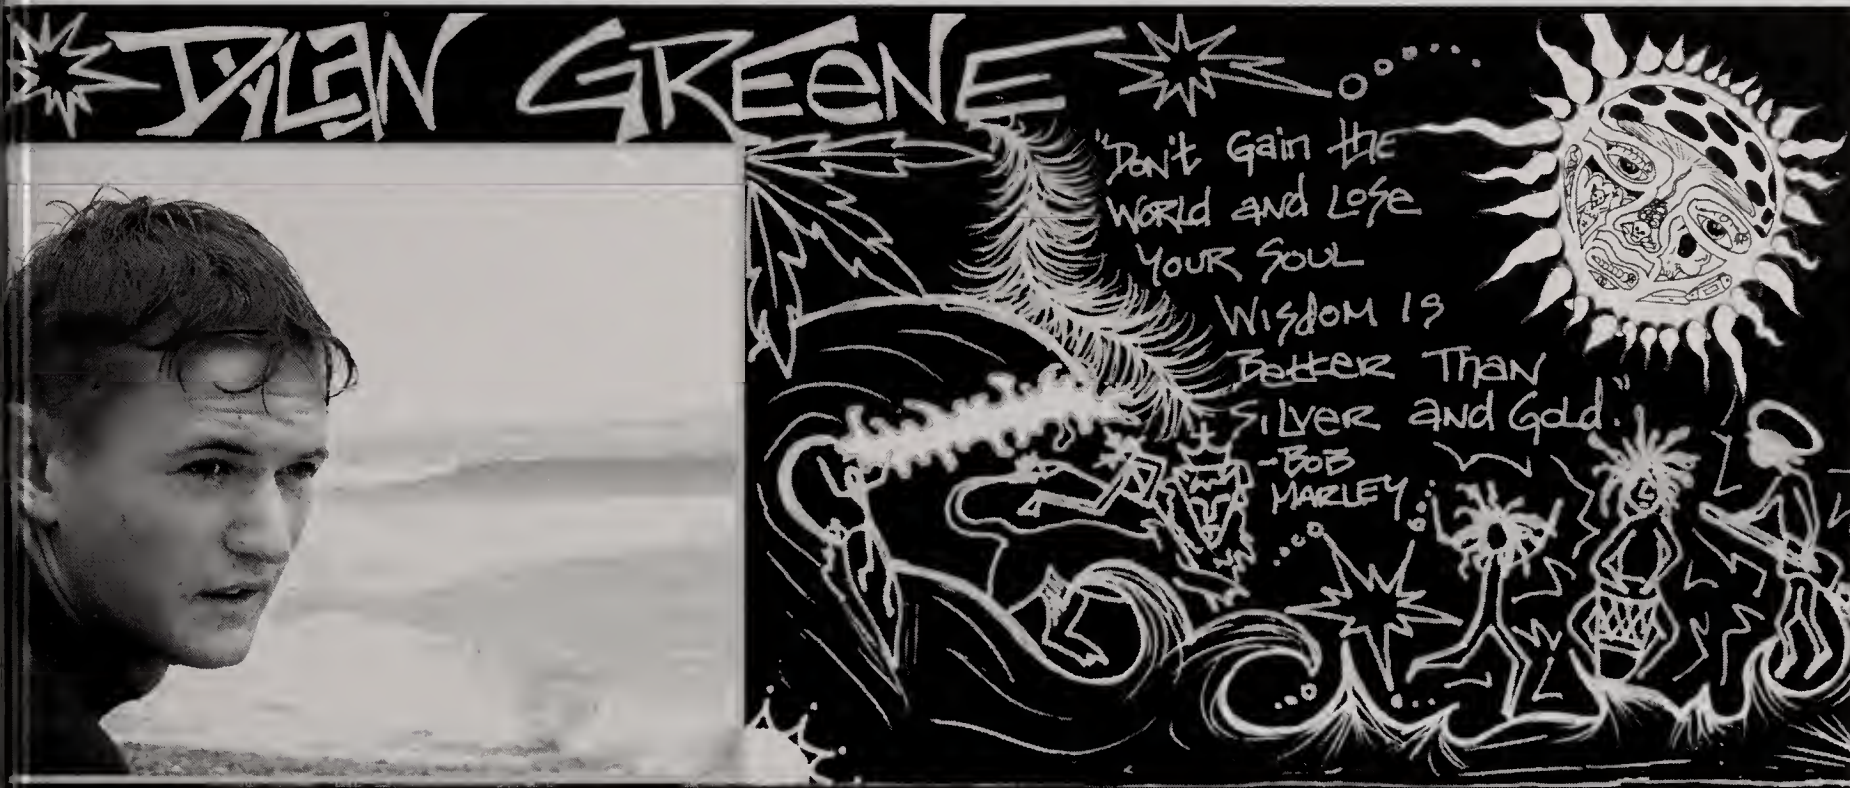 DYLAN GREENE
"Don't Gain the
World and Lose
Your Soul
Wisdom is
Better Than
Silver and Gold."
-Bob
Marley